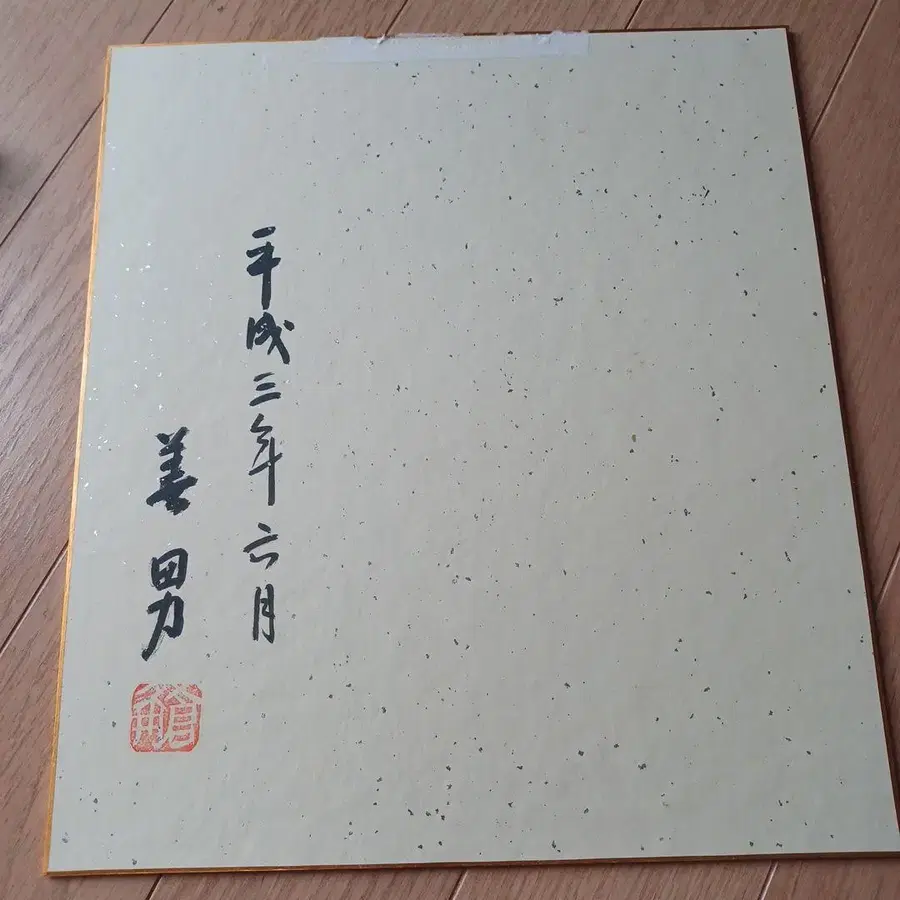 平成三年六月
善男